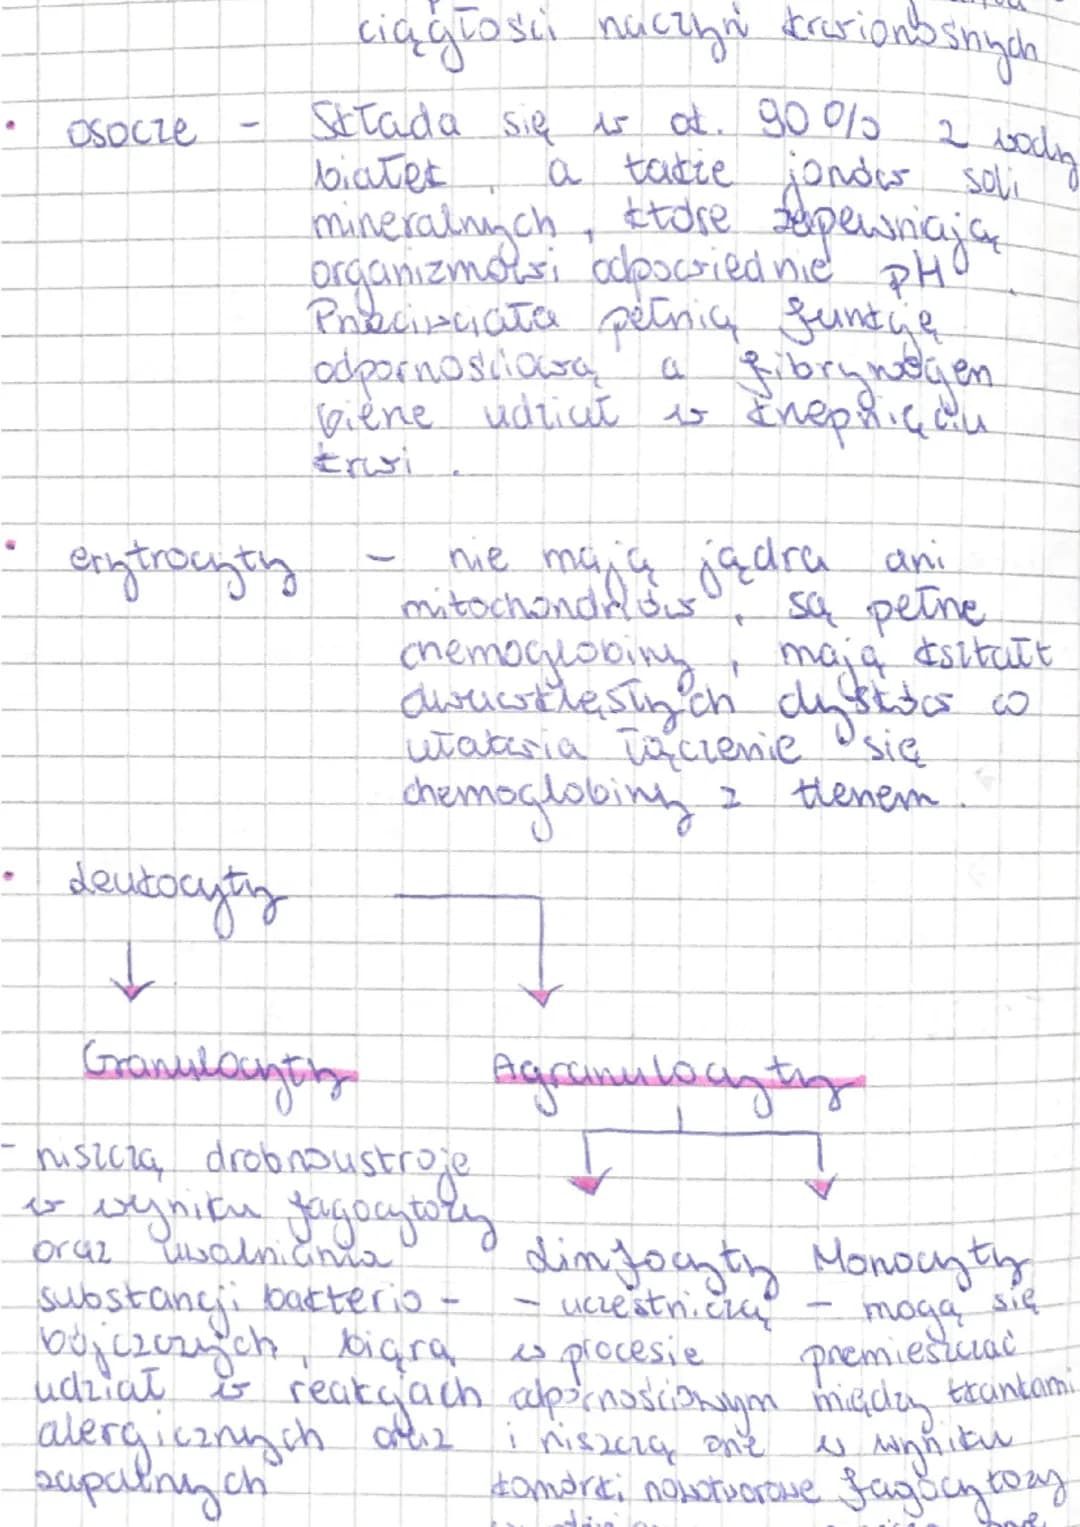 ciągłości naczyń krwionośnych
• osocze - Składa się w ok. 90% z wody
białek, a także jonów soli
mineralnych, które zapewniają
organizmowi odpowiednie pH.
Przeciwciała pełnią funkcję
odpornościową a fibrynogen
bierze udział w krzepnięciu
krwi.
• erytrocyty - nie mają jądra ani
mitochondriów, są pełne
chemoglobiny, mają kształt
dwuwklęsłych dysków co
ułatwia łączenie się
chemoglobiny z tlenem.
• Leukocyty
Granulocyty Agranulocyty
- niszczą drobnoustroje
w wyniku fagocytozy
oraz uwalniania Limfocyty Monocyty
substancji bakterio- - uczestniczą - mogą się
bójczych, biorą w procesie przemieszczać
udział w reakcjach odpornościowym między tkankami
alergicznych oraz i niszczą one w wyniku
zapalnych komórki nowotworowe fagocytozy